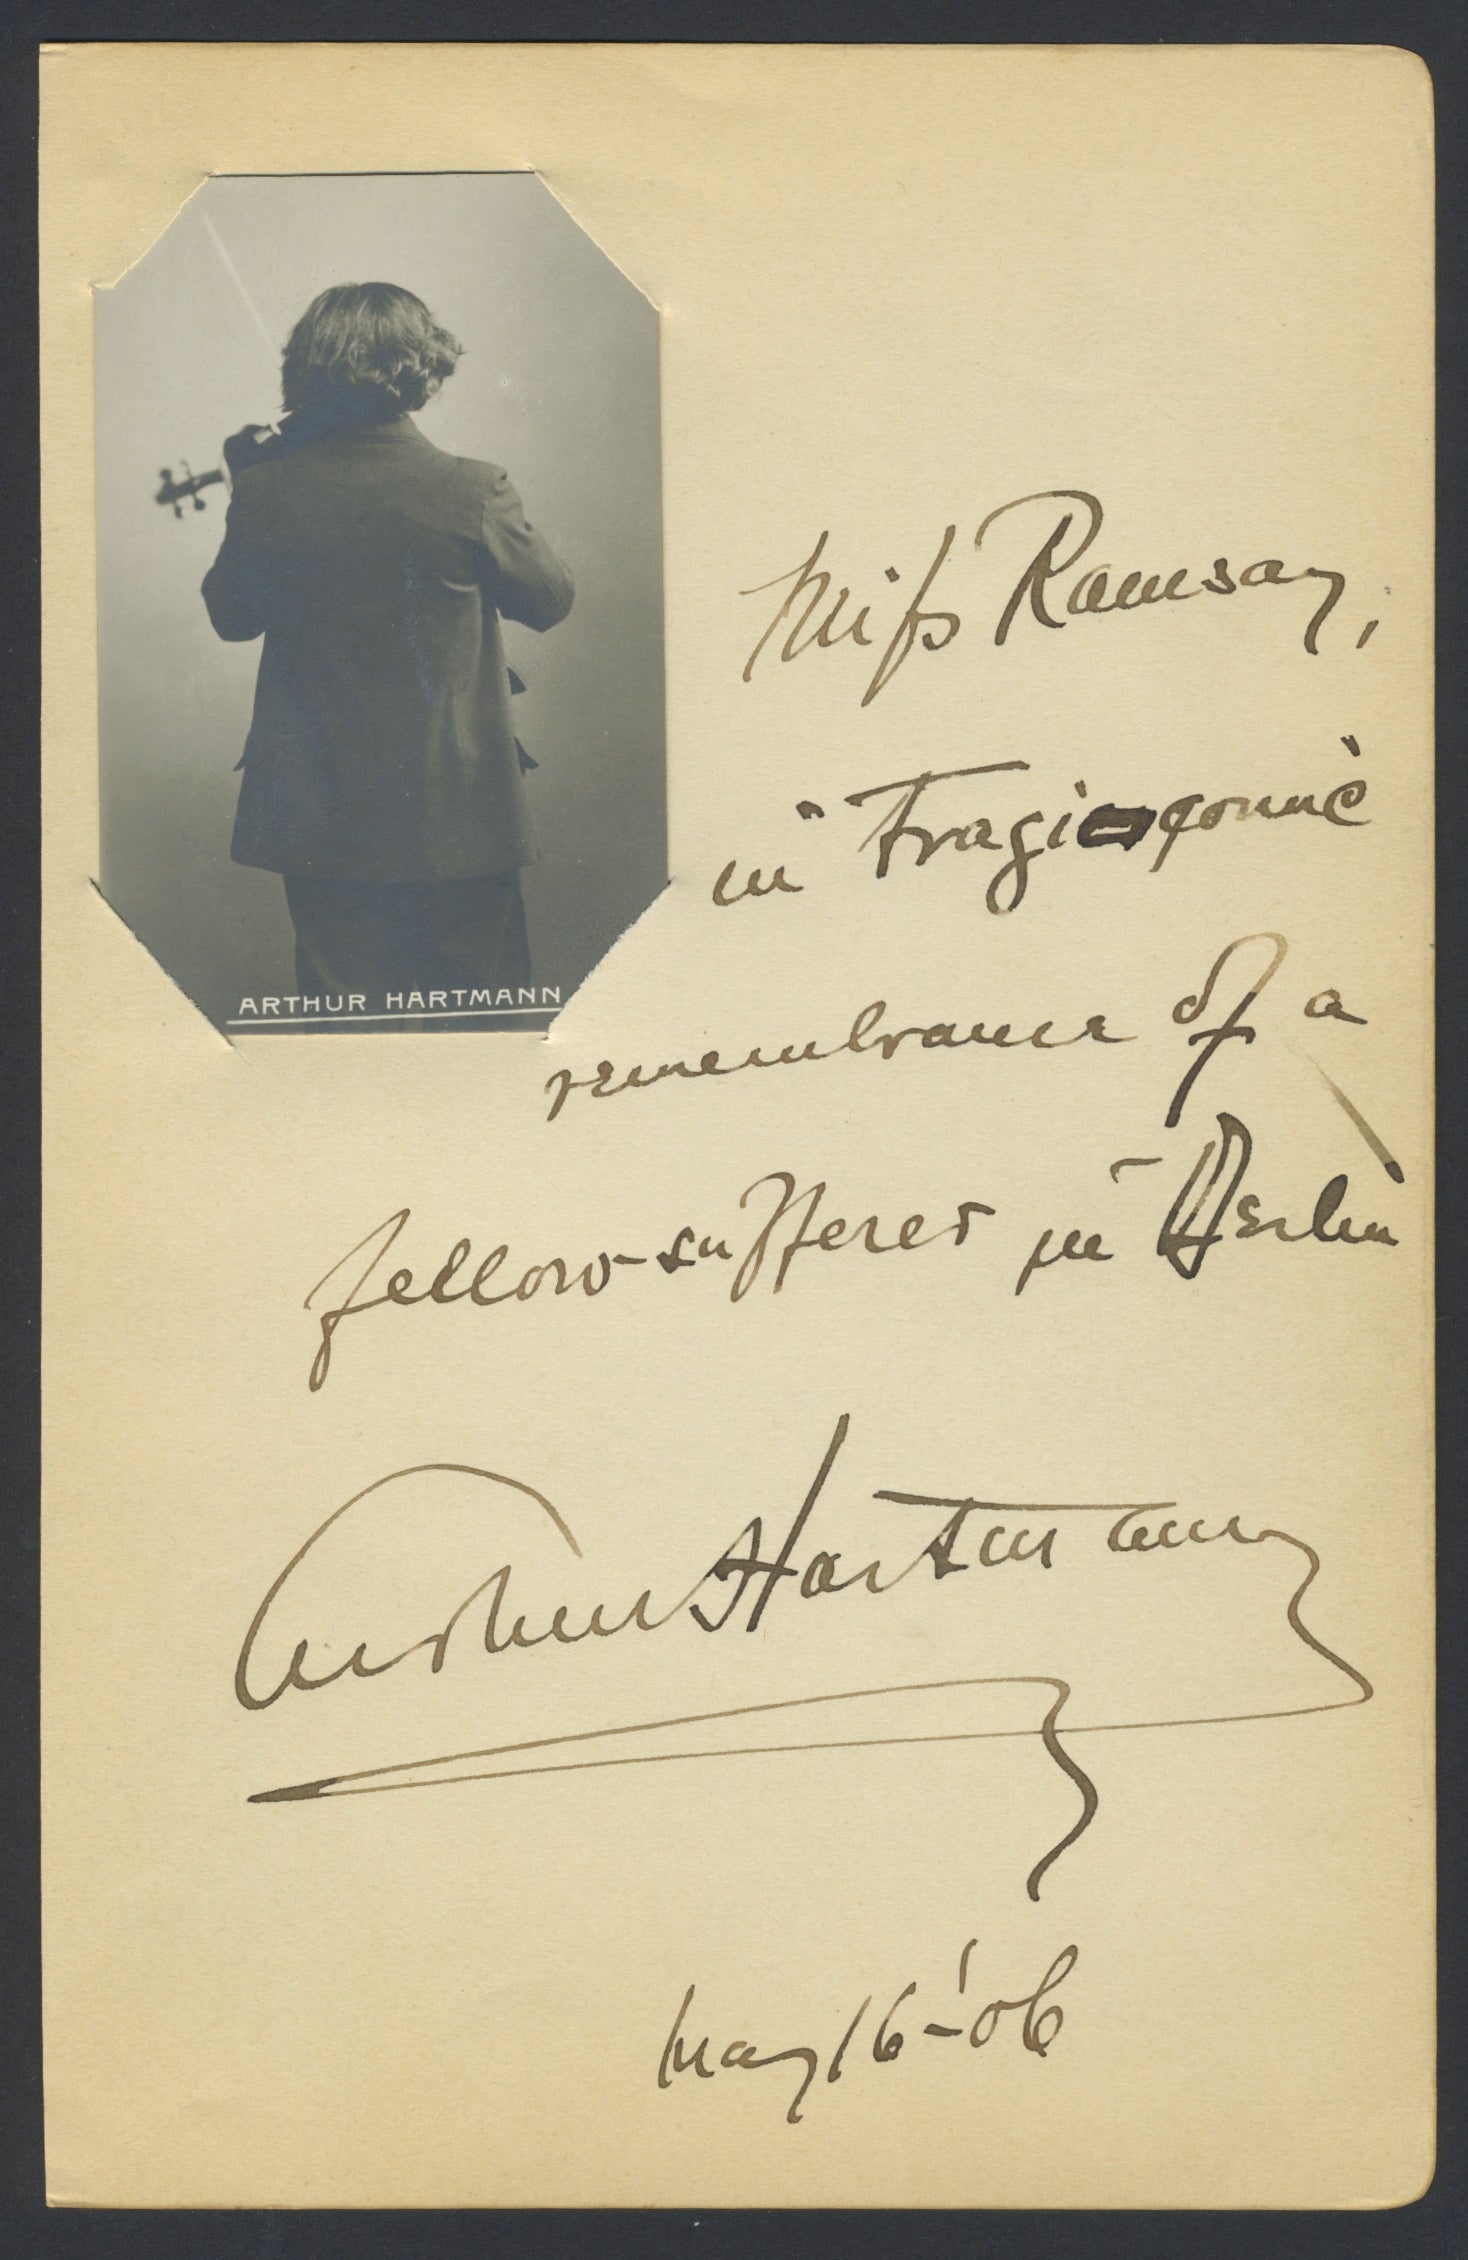 ARTHUR HARTMANN
Miſs Ramsay,
in
remembrance of a
fellow-sufferer in Berlin
Arthur Hartmann
May 16 - '06